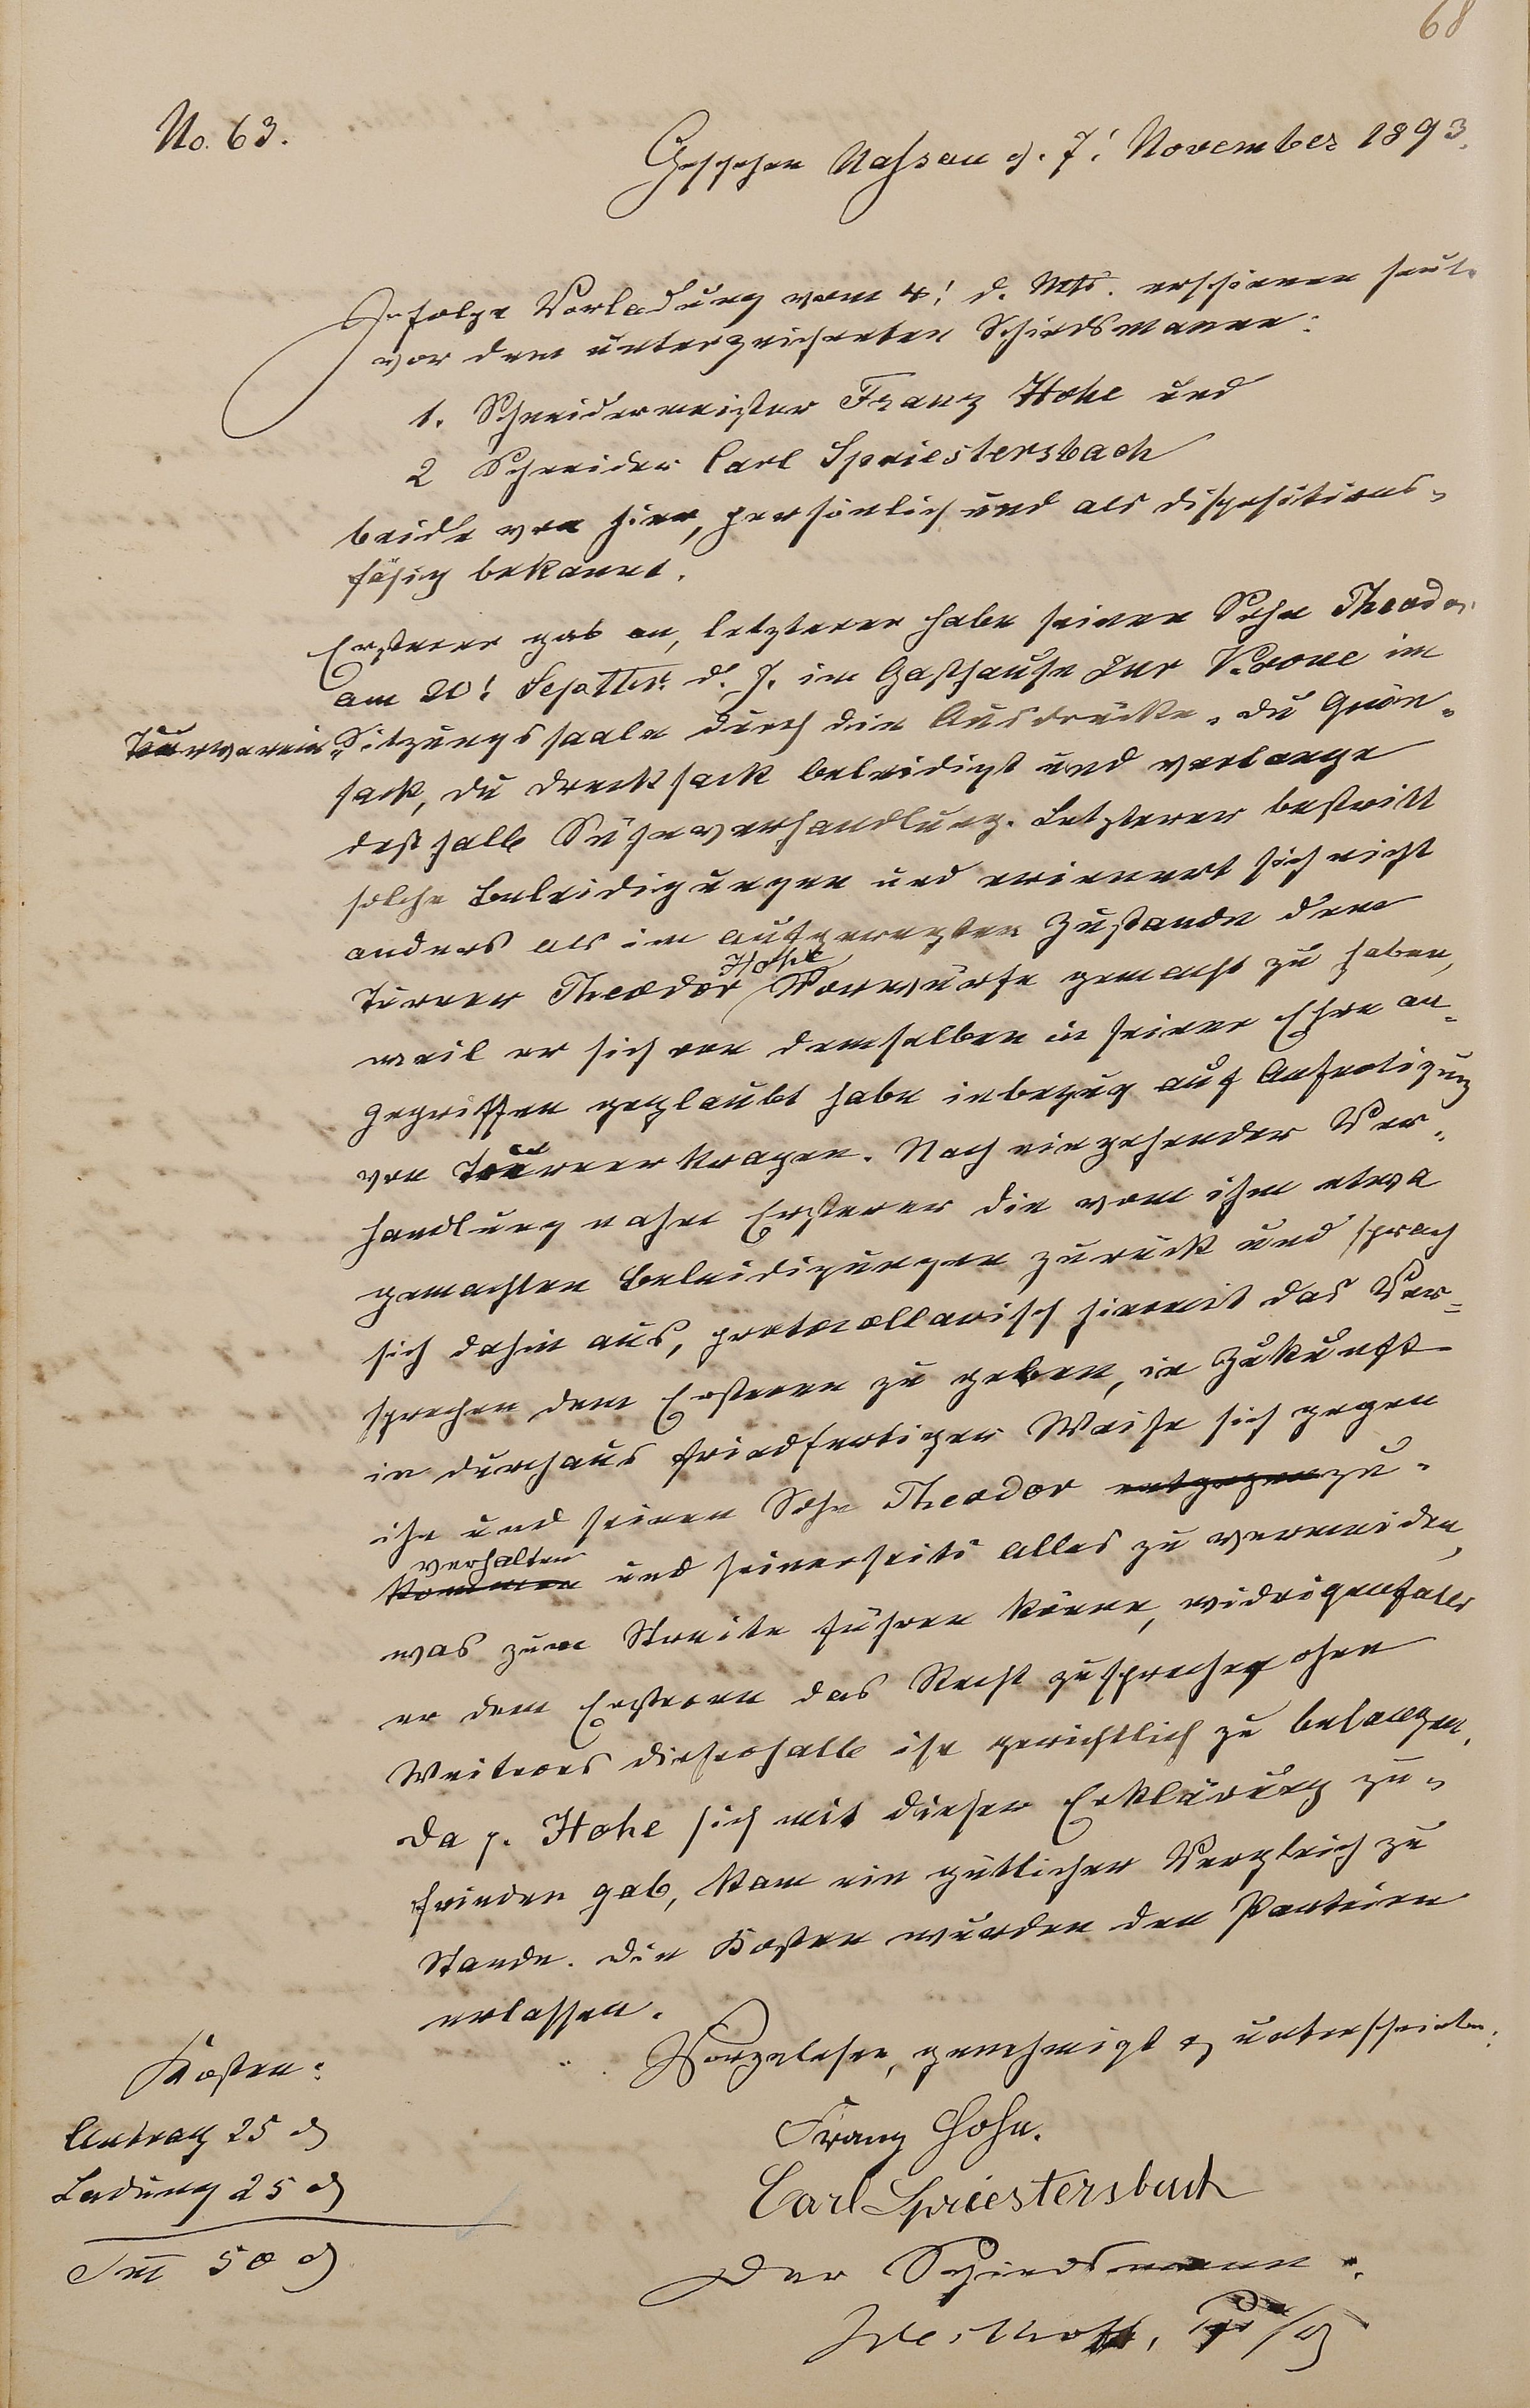 68
No. 63.
Geschehen Nassau d. 7! November 1893.
Infolge Vorladung vom 4! d. Mts. erschienen heute
vor dem unterzeichneten Schiedsmanne:
1. Schneidermeister Franz Hohe und
2 Schneider Carl Spriestersbach
beide von hier, persönlich und als dispositions-
fähig bekannt.
Ersterer gab an, letzterer habe seinen Sohn Theodor
am 20! Septbr. d. J. im Gasthause zur Krone im
Turverein Sitzungssaale durch die Ausdrücke „du
sack, du Drecksack beleidigt und verlange
deßhalb Sühneverhandlung. Letzterer bestritt
solche Beleidigungen und erinnert sich nicht
anders als im aufgeregten Zustande dem
Turner Theodor Hohe Vorwürfe gemacht zu haben,
weil er sich von demselben in seiner Ehre an-
gegriffen geglaubt habe inbezug auf Anfertigung
von Turnerkragen. Nach eingehender Ver-
handlung nahm Ersterer die vom ihm etwa
gemachten Beleidigungen zurück und sprach
sich dahin aus, protocollarisch hiermit das Ver-
sprechen dem Ersteren zu geben, in Zukunft
in durchaus friedfertiger Weise sich gegen
ihn und seinen Sohn Theodor entgegenzu-
kommen verhalten und seinerseits alles zu vermeiden,
was zum Streite führen könne, widrigenfalls
er dem Ersteren das Recht zuspreche, ohne
Weiteres dieserhalb ihn gerichtlich zu belangen.
Da p. Hohe sich mit dieser Erklärung zu-
frieden gab, kam ein gütlicher Vergleich zu
Stande. Die Kosten wurden den Parteien
erlassen.
Vorgelesen, genehmigt & unterschrieben:
Franz Hohe.
Carl Spriestersbach
Der Schiedsmann.
Kosten:
Antrag 25 ₰
Ladung 25 ₰
Sm 50 ₰